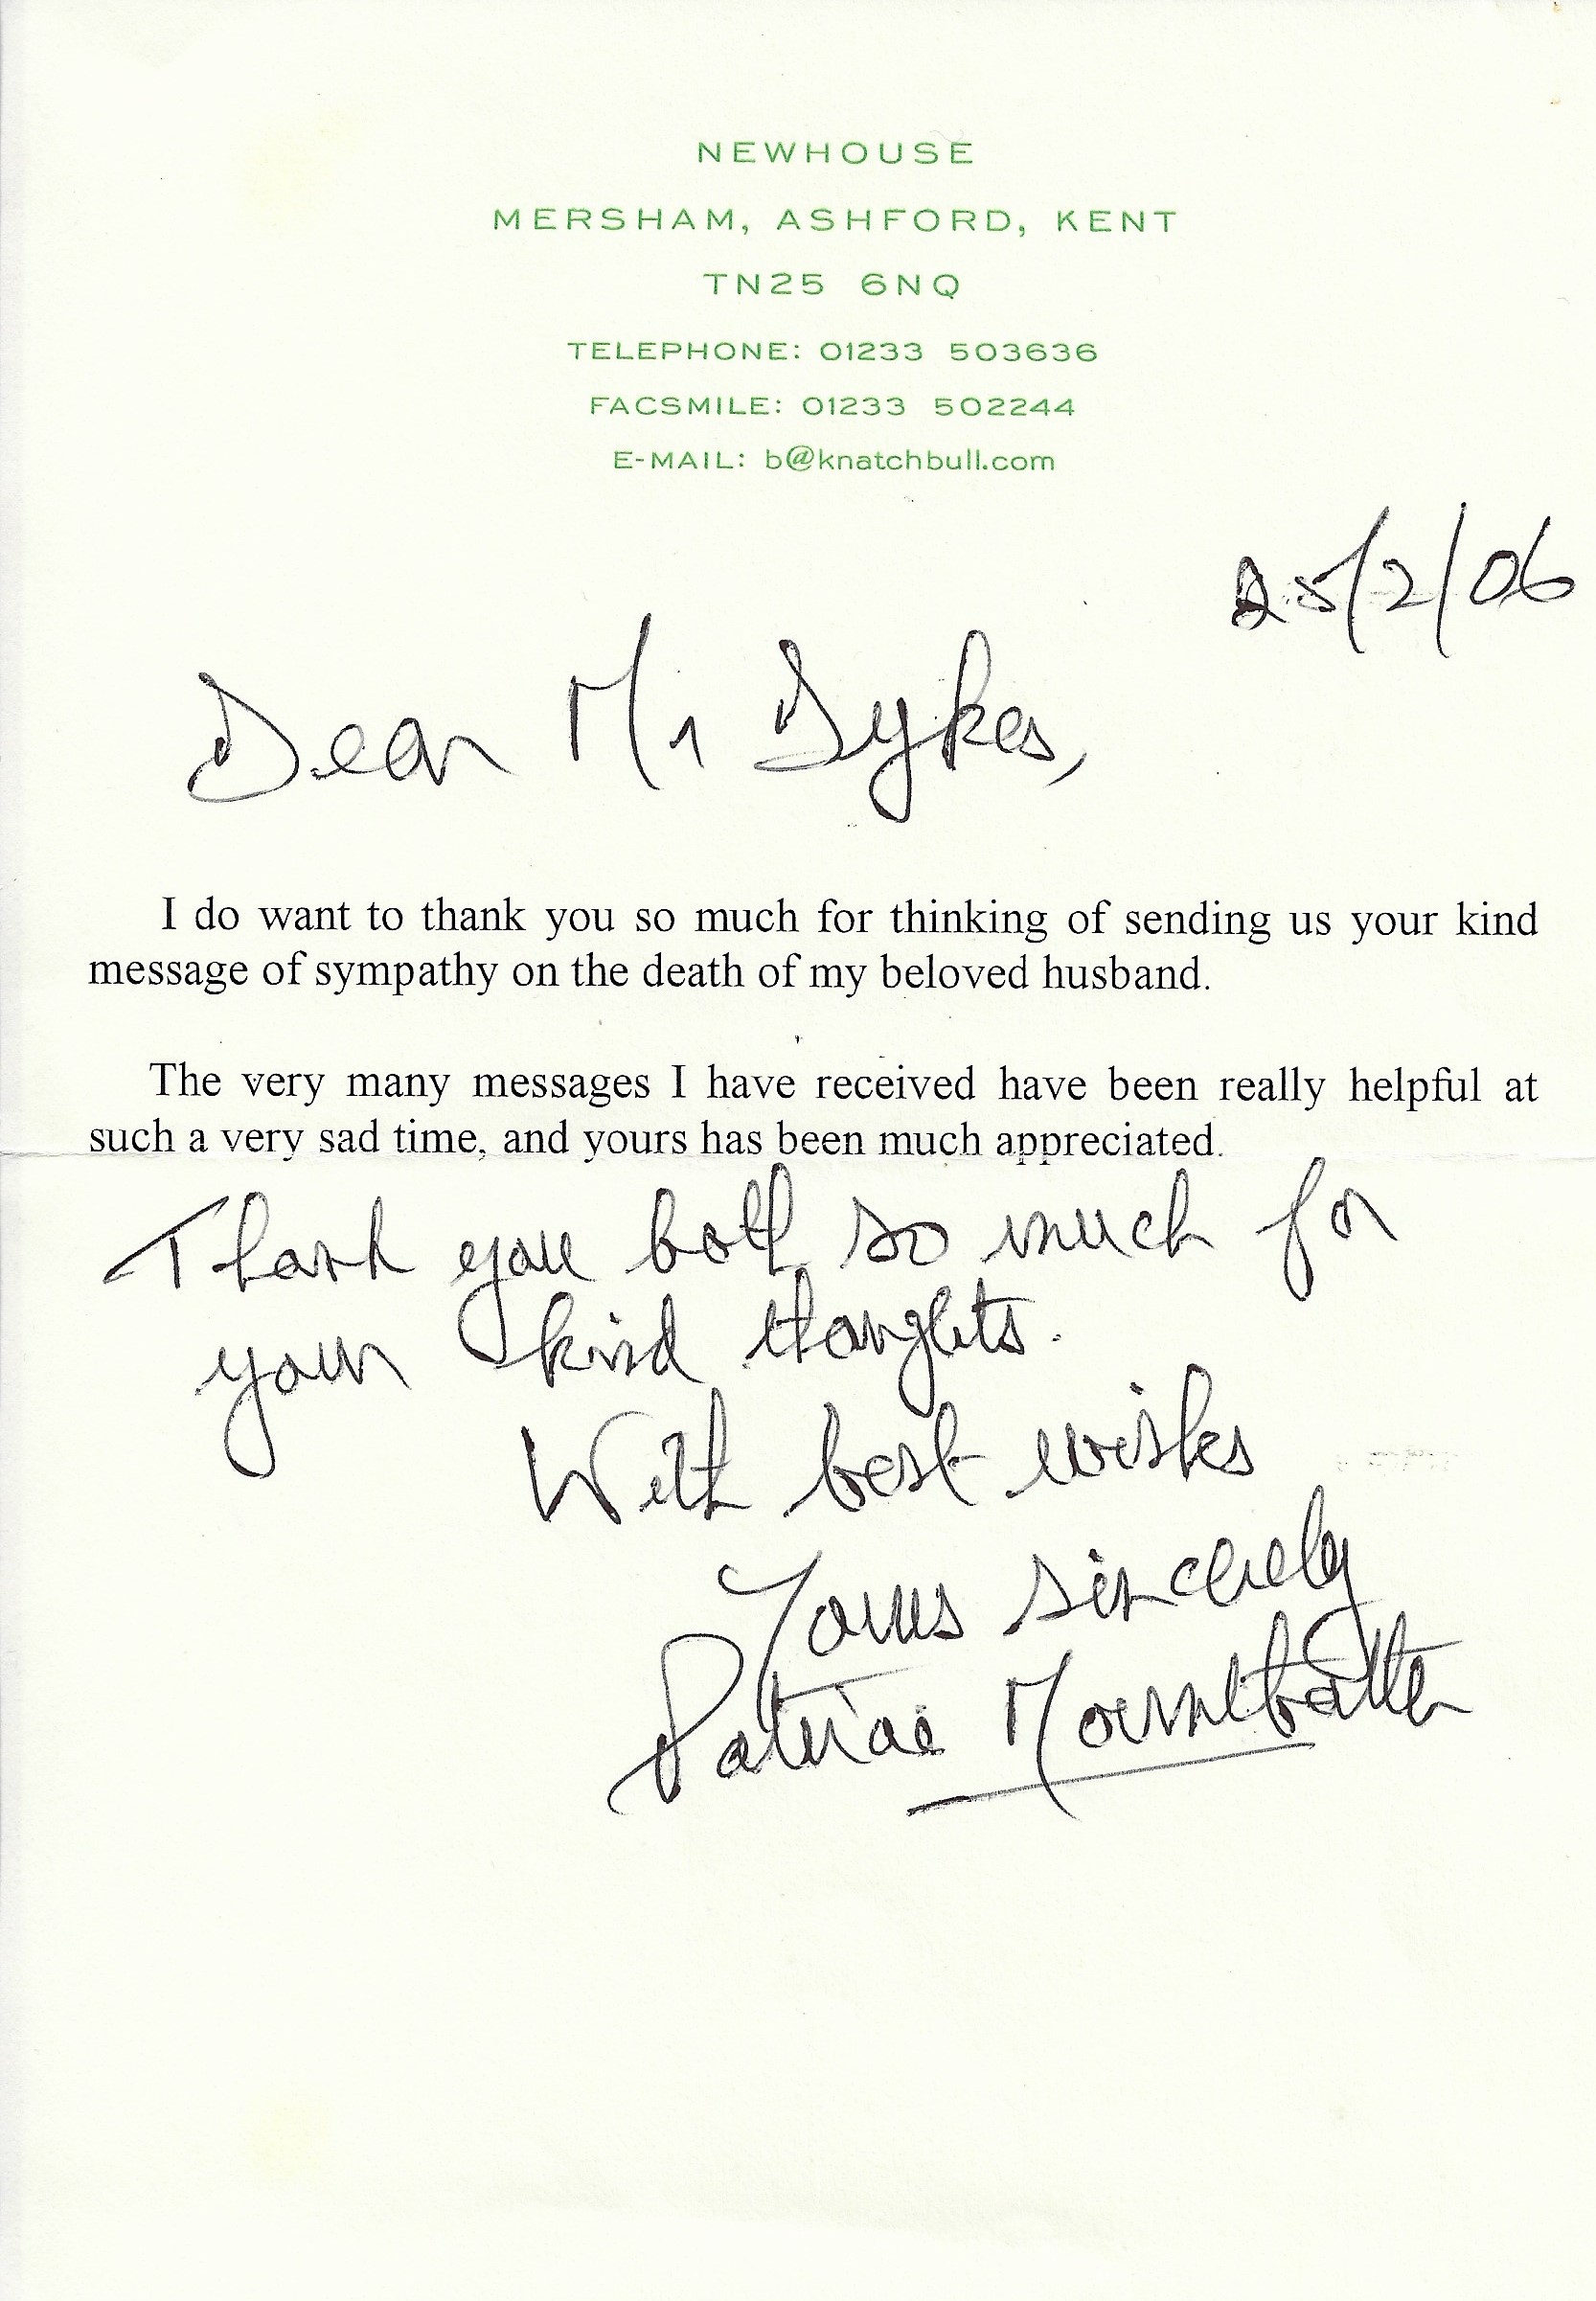 NEWHOUSE
MERSHAM, ASHFORD, KENT
TN25 6NQ
TELEPHONE: 01233 503636
FACSMILE: 01233 502244
E-MAIL: b@knatchbull.com
25/2/06
Dear Mr Dykes,
I do want to thank you so much for thinking of sending us your kind
message of sympathy on the death of my beloved husband.
The very many messages I have received have been really helpful at
such a very sad time, and yours has been much appreciated.
Thank you both so much for
your kind thoughts.
With best wishes
Yours sincerely
Patricia Mountbatten